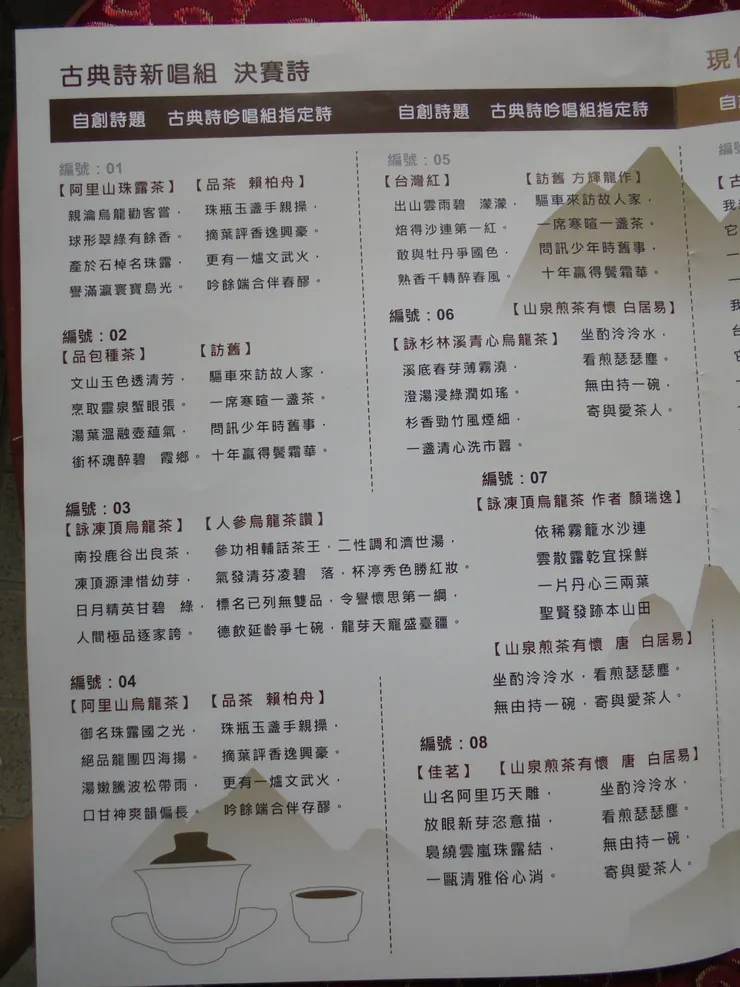 古典詩新唱組 決賽詩
自創詩題 古典詩吟唱組指定詩
編號：01
【阿里山珠露茶】
親瀹烏龍勸客嘗，
球形翠綠有餘香。
產於石棹名珠露，
譽滿瀛寰寶島光。
【品茶 賴柏舟】
珠瓶玉盞手親操，
摘葉評香逸興豪。
更有一爐文武火，
吟餘端合伴春醪。
編號：02
【品包種茶】
文山玉色透清芳，
烹取靈泉蟹眼張。
湯葉溫融壺蘊氣，
銜杯魂醉碧 霞鄉。
【訪舊】
驅車來訪故人家，
一席寒暄一盞茶。
問訊少年時舊事，
十年贏得鬢霜華。
編號：03
【詠凍頂烏龍茶】
南投鹿谷出良茶，
凍頂源津惜幼芽，
日月精英甘碧 綠，
人間極品逐家誇。
【人參烏龍茶讚】
參功相輔話茶王，二性調和濟世湯，
氣發清芬凌碧 落，杯渟秀色勝紅妝。
標名已列無雙品，令譽懷思第一綱，
德飲延齡爭七碗，龍芽天寵盛臺疆。
編號：04
【阿里山烏龍茶】
御名珠露國之光，
絕品龍團四海揚。
湯嫩騰波松帶雨，
口甘神爽韻偏長。
【品茶 賴柏舟】
珠瓶玉盞手親操，
摘葉評香逸興豪。
更有一爐文武火，
吟餘端合伴存醪。
自創詩題 古典詩吟唱組指定詩
編號：05
【台灣紅】
出山雲雨碧 濛濛，
焙得沙連第一紅。
敢與牡丹爭國色，
熟香千轉醉春風。
【訪舊 方輝龍作】
驅車來訪故人家，
一席寒暄一盞茶。
問訊少年時舊事，
十年贏得鬢霜華。
編號：06
【詠杉林溪青心烏龍茶】
溪底春芽薄霧澆，
澄湯浸綠潤如瑤。
杉香勁竹風煙細，
一盞清心洗市囂。
【山泉煎茶有懷 白居易】
坐酌泠泠水，
看煎瑟瑟塵。
無由持一碗，
寄與愛茶人。
編號：07
【詠凍頂烏龍茶 作者 顏瑞逸】
依稀霧籠水沙連
雲散露乾宜採鮮
一片丹心三兩葉
聖賢發跡本山田
【山泉煎茶有懷 唐 白居易】
坐酌泠泠水，看煎瑟瑟塵。
無由持一碗，寄與愛茶人。
編號：08
【佳茗】
山名阿里巧天雕，
放眼新芽恣意描，
裊繞雲嵐珠露結，
一甌清雅俗心消。
【山泉煎茶有懷 唐 白居易】
坐酌泠泠水，
看煎瑟瑟塵。
無由持一碗，
寄與愛茶人。